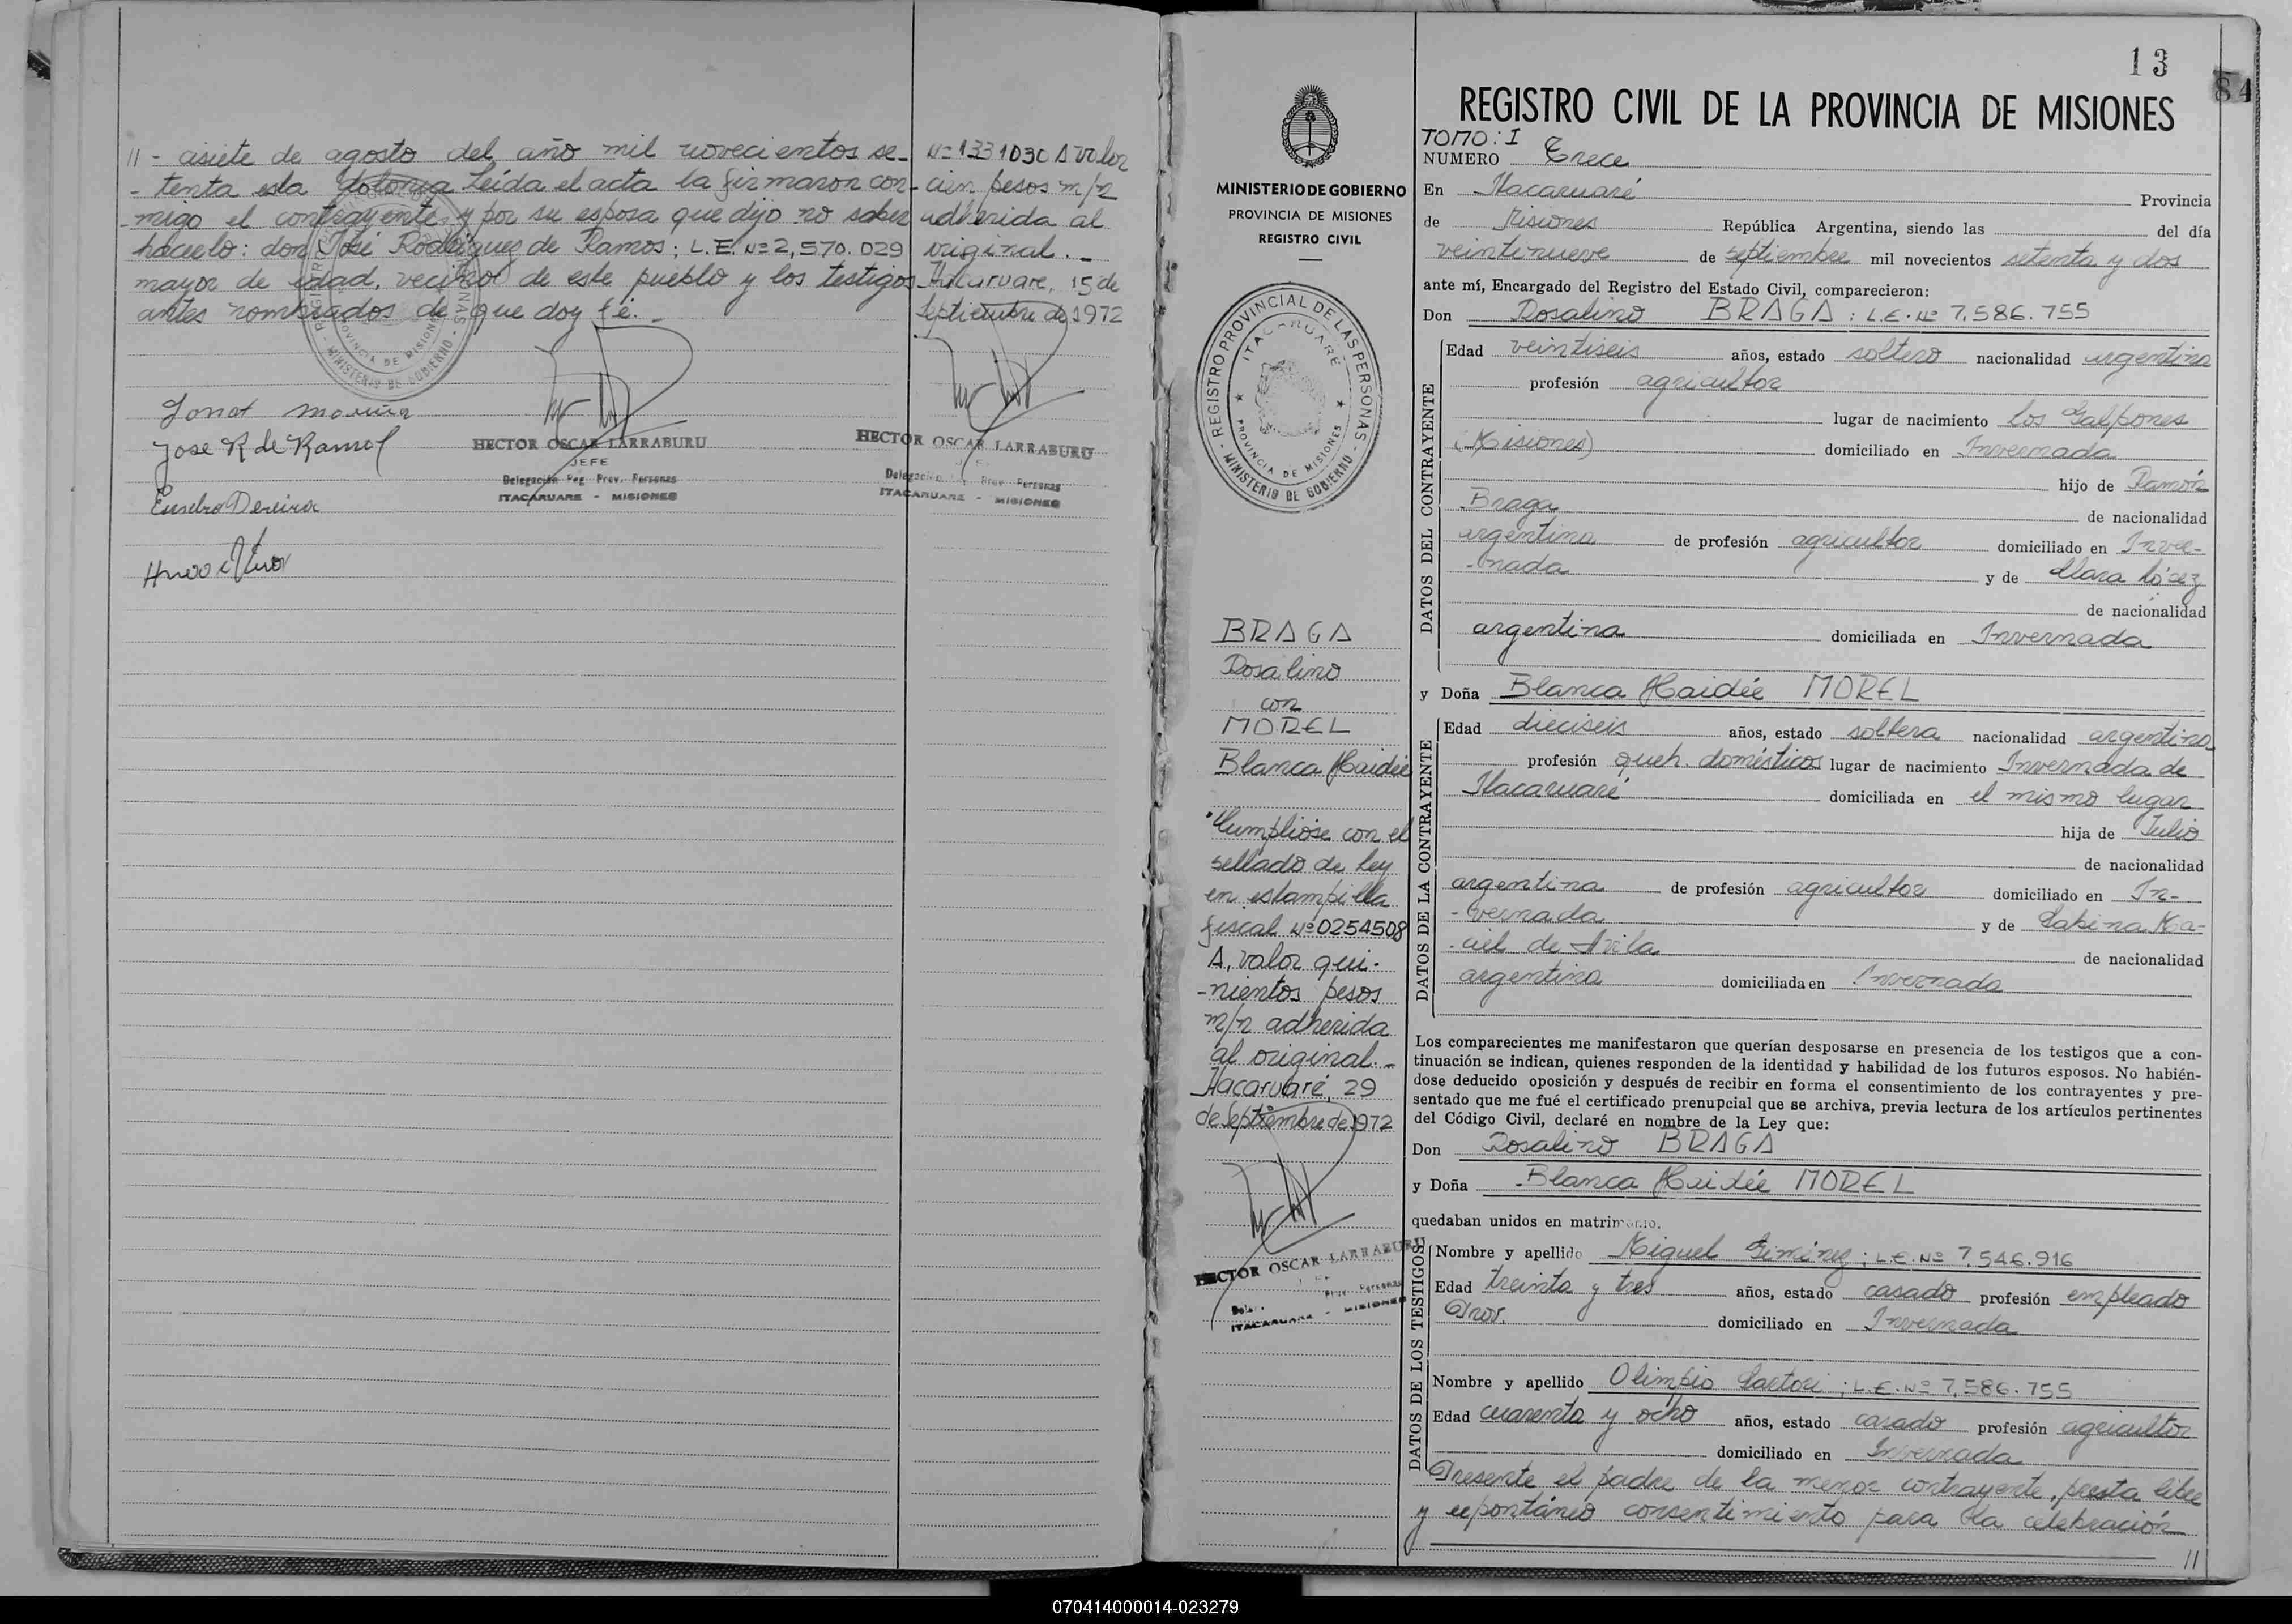 11 - asiete de agosto del año mil novecientos se-
- tenta esta Colonia Leída el acta la firmaron con-
- migo el contrayente y por su esposa que dijo no saber
hacerlo: don José Rodríguez de Ramos; L.E. Nº 2,570.029
mayor de edad, vecino de este pueblo y los testigos
antes nombrados de que doy fé. -
Jose R de Ramos
HECTOR OSCAR LARRABURU
JEFE
Delegación Reg. Prov. Personas
ITACARUARE - MISIONES
Nº 1331030 A valor
cien pesos m/n
adherida al
original. -
Itacaruare, 15 de
Septiembre de 1972
HECTOR OSCAR LARRABURU
ITACARUARE - MISIONES
MINISTERIO DE GOBIERNO
PROVINCIA DE MISIONES
REGISTRO CIVIL
REGISTRO PROVINCIAL DE LAS PERSONAS
ITACARUARÉ
PROVINCIA DE MISIONES
MINISTERIO DE GOBIERNO
BRAGA
Rosalino
con
MOREL
Blanca Haidée
Cumplióse con el
sellado de ley
en estampilla
fiscal Nº 0254508
A, valor qui-
-nientos pesos
m/n adherida
al original. -
Itacaruaré, 29
de Septiembre de 1972
HECTOR OSCAR LARRABURU
ITACARUARE - MISIONES
13
84
REGISTRO CIVIL DE LA PROVINCIA DE MISIONES
TOMO: I
NUMERO Trece
En Itacaruaré Provincia
de Misiones República Argentina, siendo las del día
veintinueve de septiembre mil novecientos setenta y dos
ante mí, Encargado del Registro del Estado Civil, comparecieron:
Don Rosalino BRAGA : L.E. Nº 7.586.755
DATOS DEL CONTRAYENTE
Edad veintiseis años, estado soltero nacionalidad argentina
profesión agricultor
lugar de nacimiento Los Galpones
(Misiones) domiciliado en Invernada
hijo de Ramón
Braga de nacionalidad
argentina de profesión agricultor domiciliado en Inver-
-nada y de Clara López
de nacionalidad
argentina domiciliada en Invernada
y Doña Blanca Haidée MOREL
DATOS DE LA CONTRAYENTE
Edad dieciseis años, estado soltera nacionalidad argentina
profesión queh. domésticos lugar de nacimiento Invernada de
Itacaruaré domiciliada en el mismo lugar
hija de Julio
de nacionalidad
argentina de profesión agricultor domiciliado en In-
-vernada y de Sabina Ma-
-ciel de Avila de nacionalidad
argentina domiciliada en Invernada
Los comparecientes me manifestaron que querían desposarse en presencia de los testigos que a con-
tinuación se indican, quienes responden de la identidad y habilidad de los futuros esposos. No habién-
dose deducido oposición y después de recibir en forma el consentimiento de los contrayentes y pre-
sentado que me fué el certificado prenupcial que se archiva, previa lectura de los artículos pertinentes
del Código Civil, declaré en nombre de la Ley que:
Don Rosalino BRAGA
y Doña Blanca Haidée MOREL
quedaban unidos en matrimonio.
DATOS DE LOS TESTIGOS
Nombre y apellido Miguel Giménez ; L.E. Nº 7.546.916
Edad treinta y tres años, estado casado profesión empleado
Prov. domiciliado en Invernada
Nombre y apellido Olimpio Sartori ; L.E. Nº 7.586.755
Edad cuarenta y ocho años, estado casado profesión agricultor
domiciliado en Invernada
Presente el padre de la menor contrayente, presta libre
y espontáneo consentimiento para la celebración
11
070414000014-023279